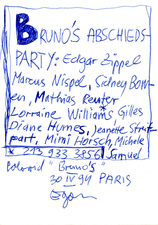 BRUNO'S ABSCHIEDS-
PARTY: Edgar Zippel
Marcus Nispel, Sidney Bow-
en, Mathias Reuter
Lorraine Williams*, Gilles
Diane Humes, Jeanette Streit-
part, Mimi Horsch, Michele
* 213 933 3856 Samuel
"Bruno's"
30 IV 94 PARIS